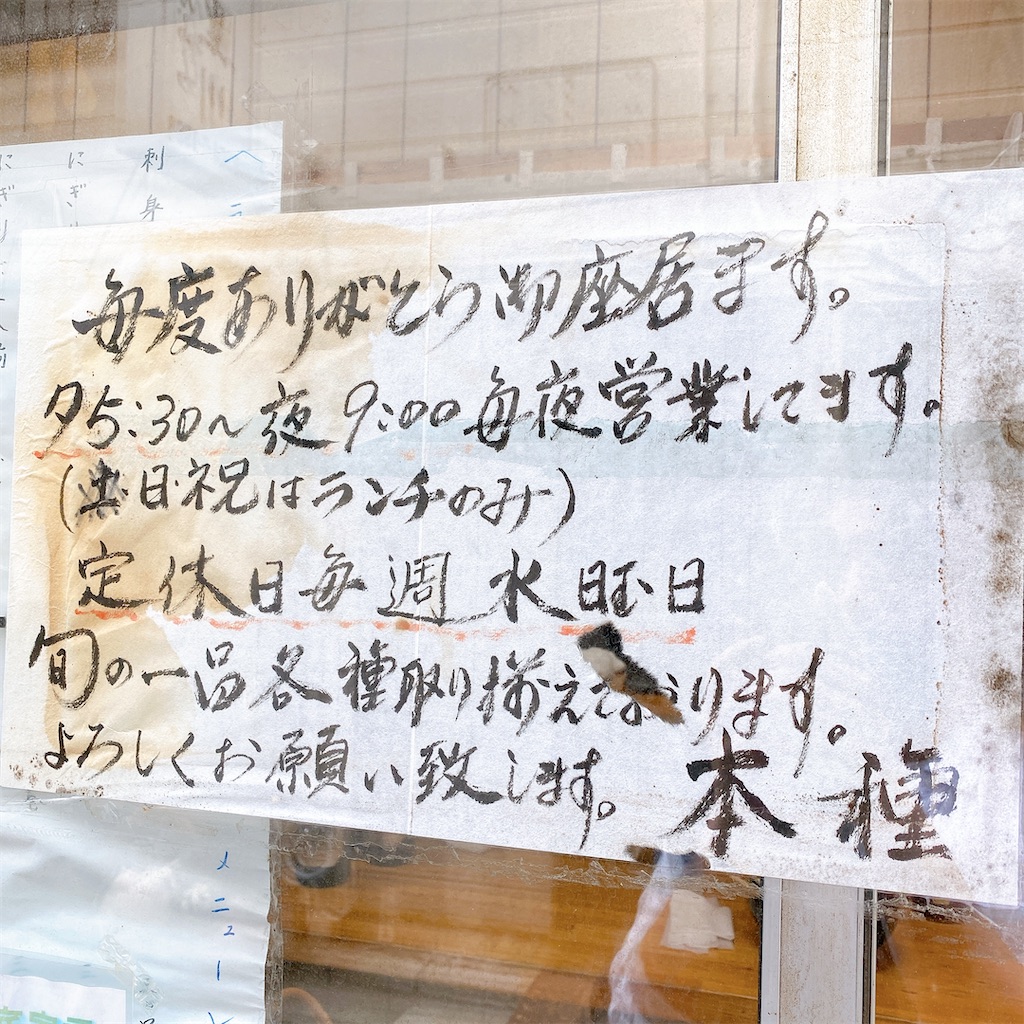 毎度ありがとう御座居ます。
夕5:30〜夜9:00毎夜営業してます。
(土日祝はランチのみ)
定休日毎週水曜日
旬の一品各種取り揃えております。
よろしくお願い致します。
本種
刺身
にぎり
メニュー